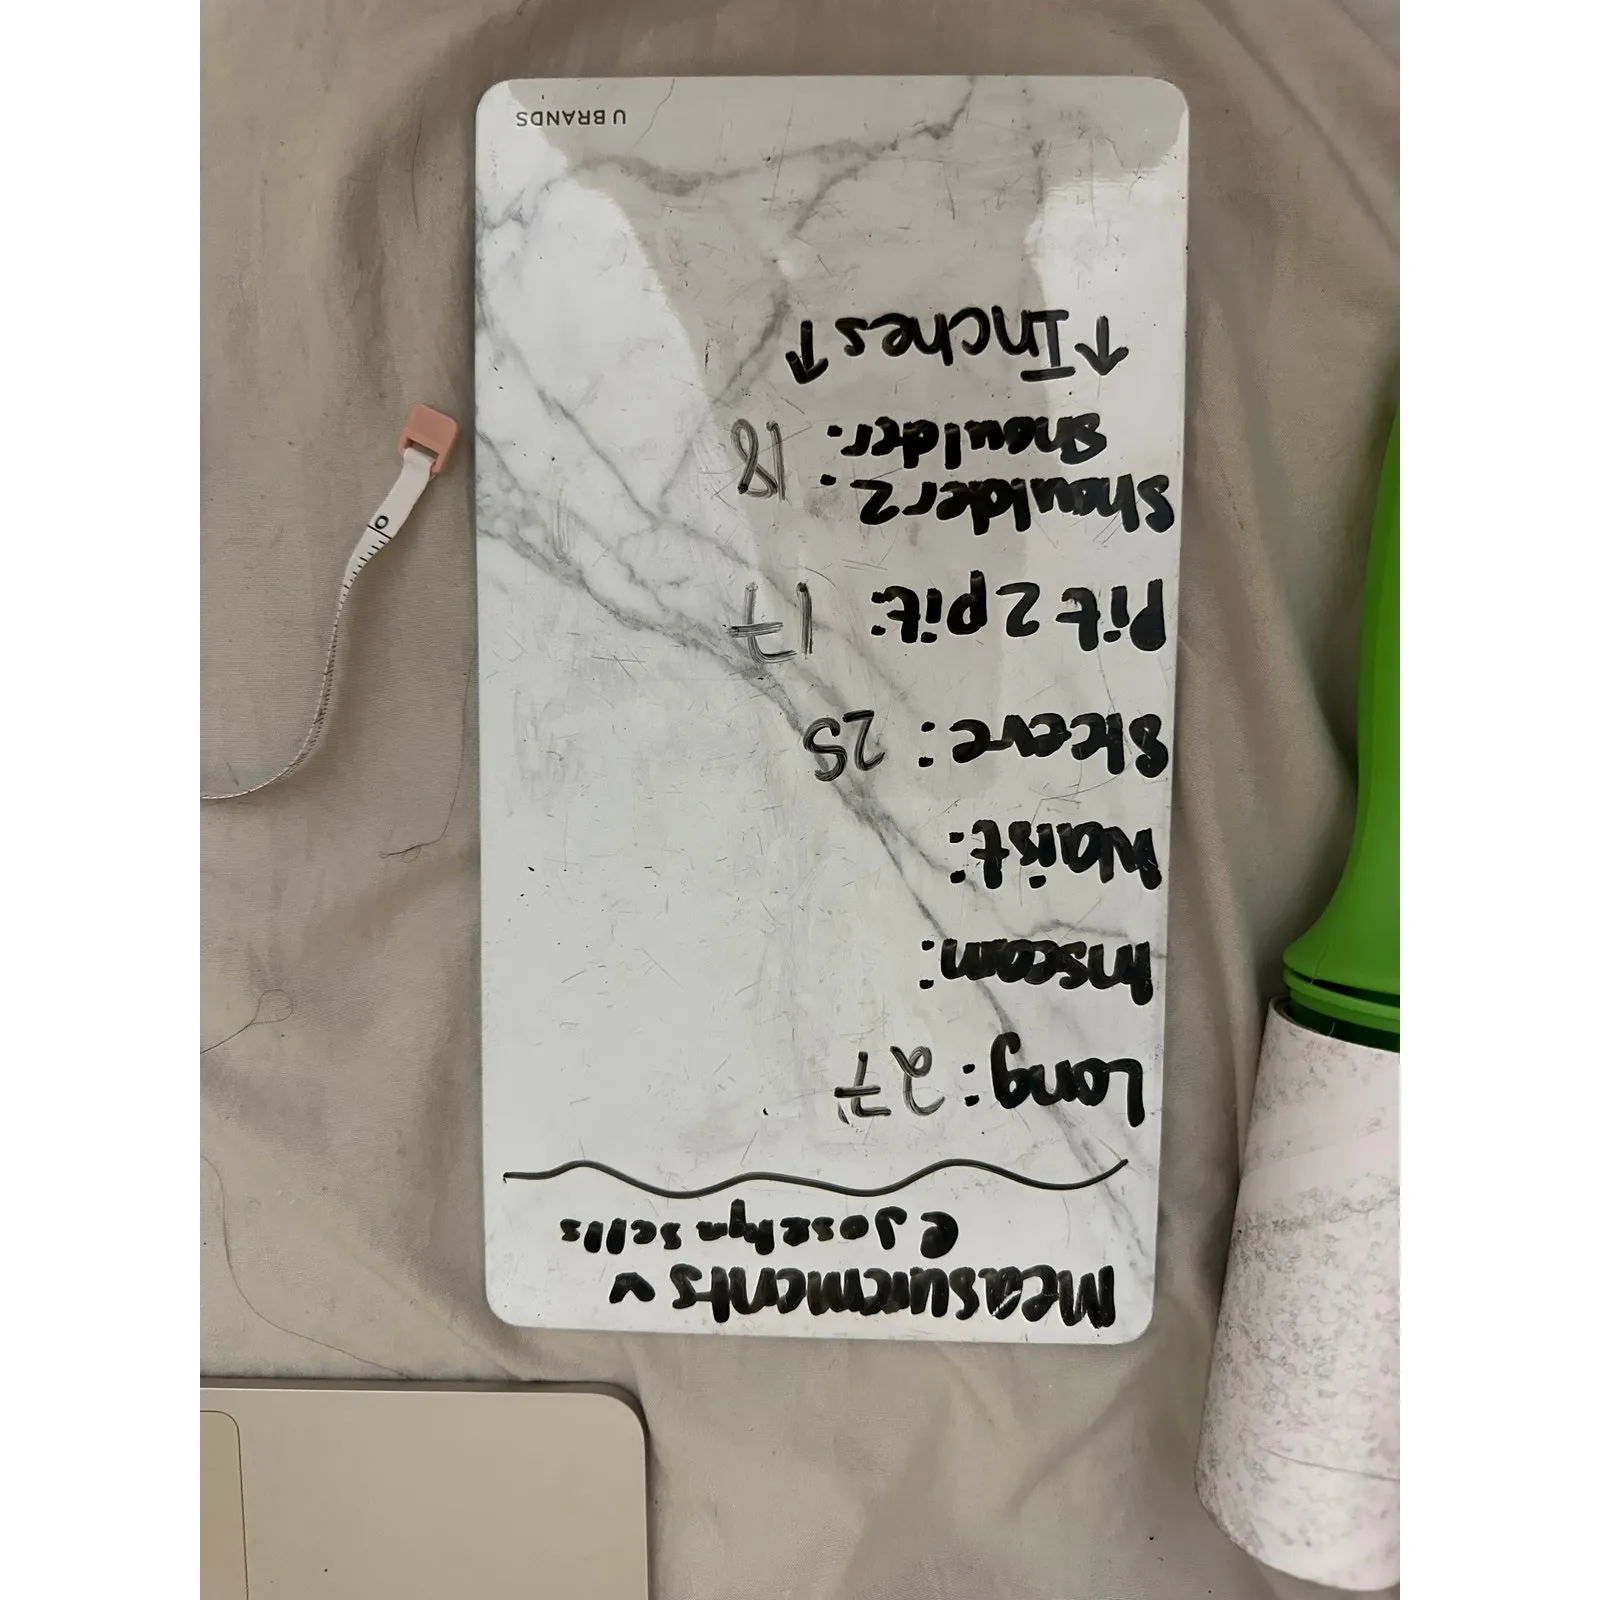 Measurements
@Joselynsells
Long: 27
Inseam:
Waist:
Sleeve: 25
Pit 2 pit: 17
Shoulder 2
Shoulder: 18
↑Inches↑
U BRANDS
0